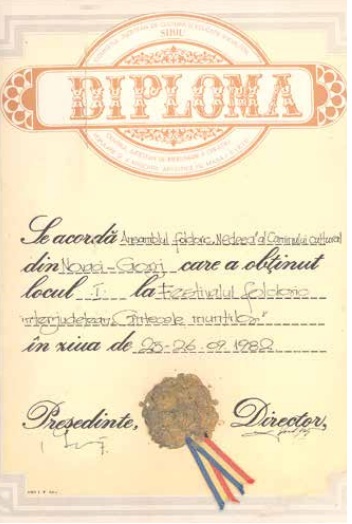 SIBIU
DIPLOMA
Se acordă Ansamblul folcloric „Nedeea” al Căminului cultural
din Novaci-Gorj care a obținut
locul I la Festivalul folcloric
interjudețean „Cîntecele munților”
în ziua de 25-26.09.1982
Președinte, Director,